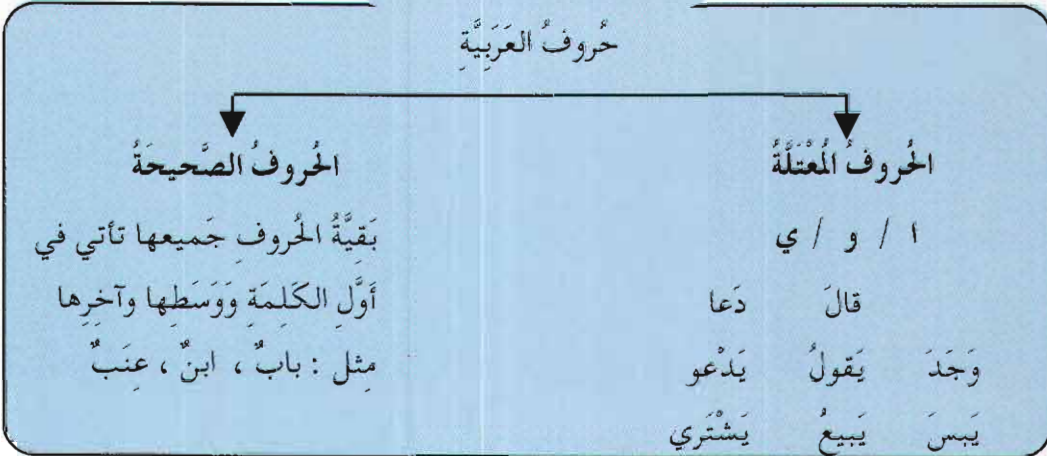 حُروفُ العَرَبِيَّةِ
الحُروفُ المُعْتَلَّةُ
ا / و / ي
قالَ دَعا
وَجَدَ يَقولُ يَدْعو
يَبسَ يَبيعُ يَشْتَري
الحُروفُ الصَّحيحَةُ
بَقِيَّةُ الحُروفِ جَميعها تأتي في
أَوَّلِ الكَلِمَةِ وَوَسَطِها وآخِرِها
مِثل : بابٌ ، ابنٌ ، عِنَبٌ